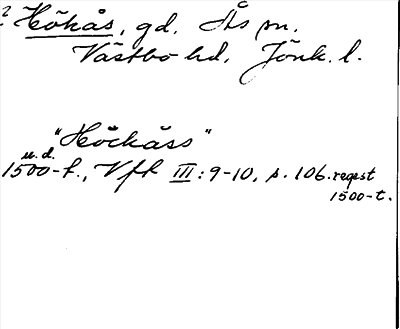 ? Hökås, gd. Ås sn.
Västbo hd, Jönk. l.
"Höckåss"
u.d.
1500-t., Vfk III: 9-10, s. 106. regest
1500-t.